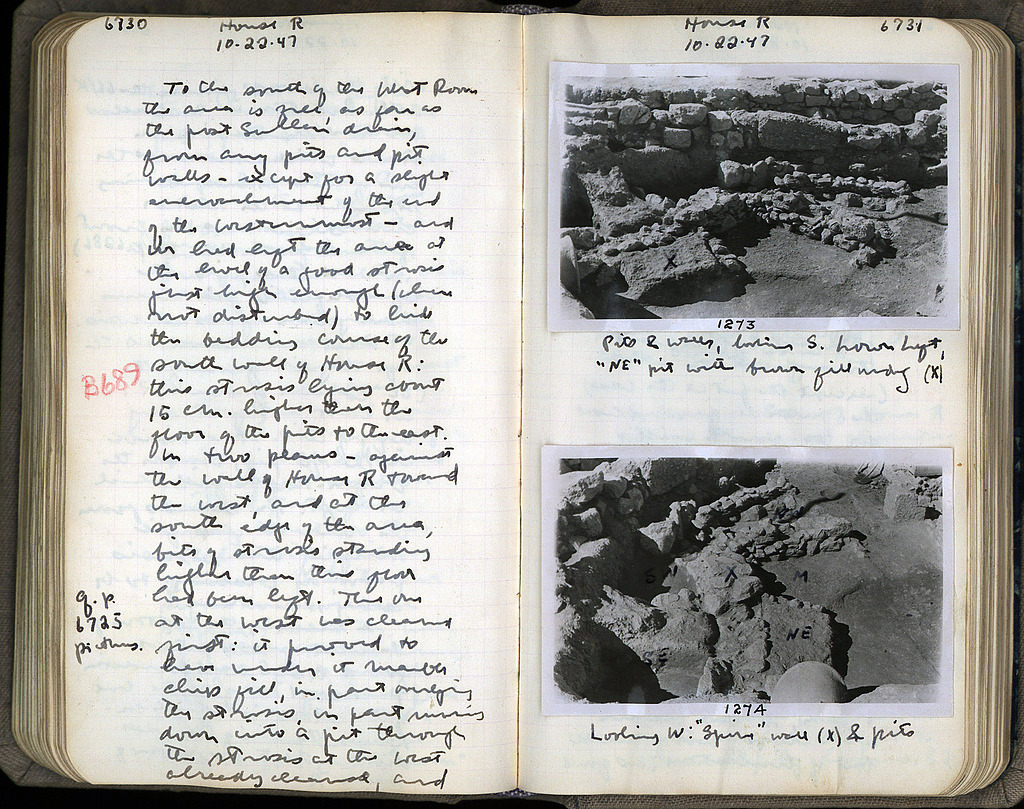 6730
House R
10.22.47
To the south of the West Room
the area is free, as far as
the post Sullan drain,
from any pits and pit
walls - except for a slight
encroachment of the end
of the westernmost - and
we had left the area at
the level of a good strosis
just high enough (when
not disturbed) to hide
the bedding course of the
south wall of House R:
this strosis lying about
15 cm. higher than the
floor of the pits to the east.
In two places - against
the wall of House R toward
the west, and at the
south edge of the area,
bits of strosis standing
higher than this floor
had been left. The one
at the west was cleared
first: it proved to
have under it marble
chips fill, in part
the strosis, in part running
down into a pit through
the strosis at the west
already cleaned, and
B689
q.p.
6725
pictures.
House R
10.22.47
6731
1273
Pits & walls, looking S. Lower left,
"NE" pit with brown fill (X)
X
1274
Looking W: "Spine" wall (X) & pits
X
M
NE